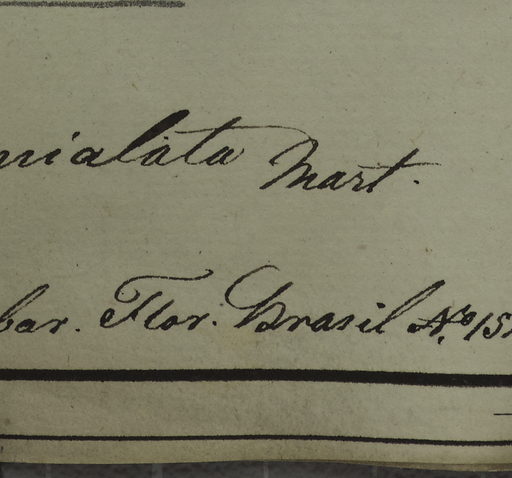 nialata Mart.
bar. Flor. Brasil No 15